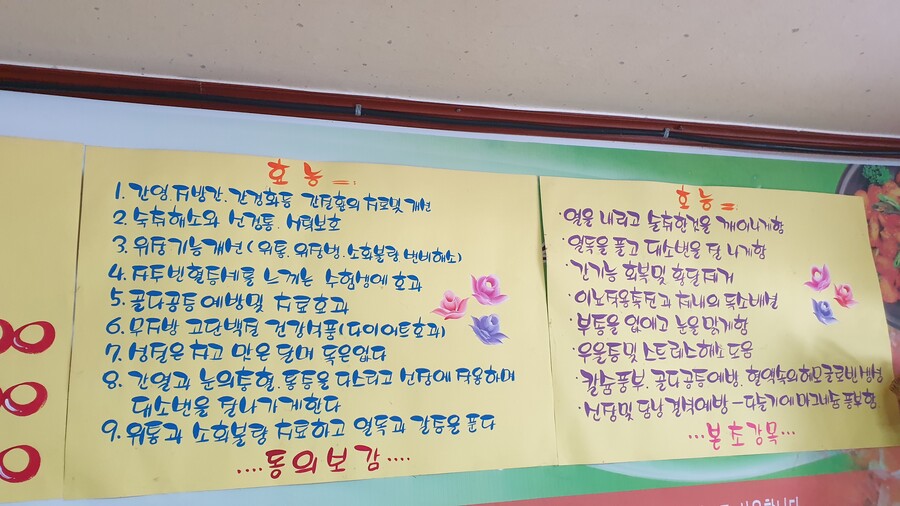 효능
1. 간염. 지방간. 간경화등 간질환의 치료및 개선
2. 숙취해소와 신경통. 시력보호
3. 위장기능개선(위통. 위장병. 소화불량 변비해소)
4. 저두빈혈등세를 느끼는 수험생에 효과
5. 골다공증예방및 치료효과
6. 저지방 고단백질 건강식품(다이어트효과)
7. 성질은 차고 맛은 달며 독은없다
8. 간열과 눈의충혈. 통증을 다스리고 신장에 작용하며
대소변을 잘나가게한다
9. 위통과 소화불량 치료하고 열독과 갈증을 푼다
....동의보감....
효능
·열을 내리고 술취한것을 깨어나게함
·열독을 풀고 대소변을 잘 나게함
·간기능 회복및 황달제거
·이뇨작용촉진과 체내의 독소배설
·부종을 없애고 눈을 맑게함
·우울증및 스트레스해소 도움
·칼슘풍부. 골다공증예방. 혈액속의 헤모글로빈 생성
·신장및 담낭 결석예방 - 다슬기에 마그네슘 풍부함
...본초강목...